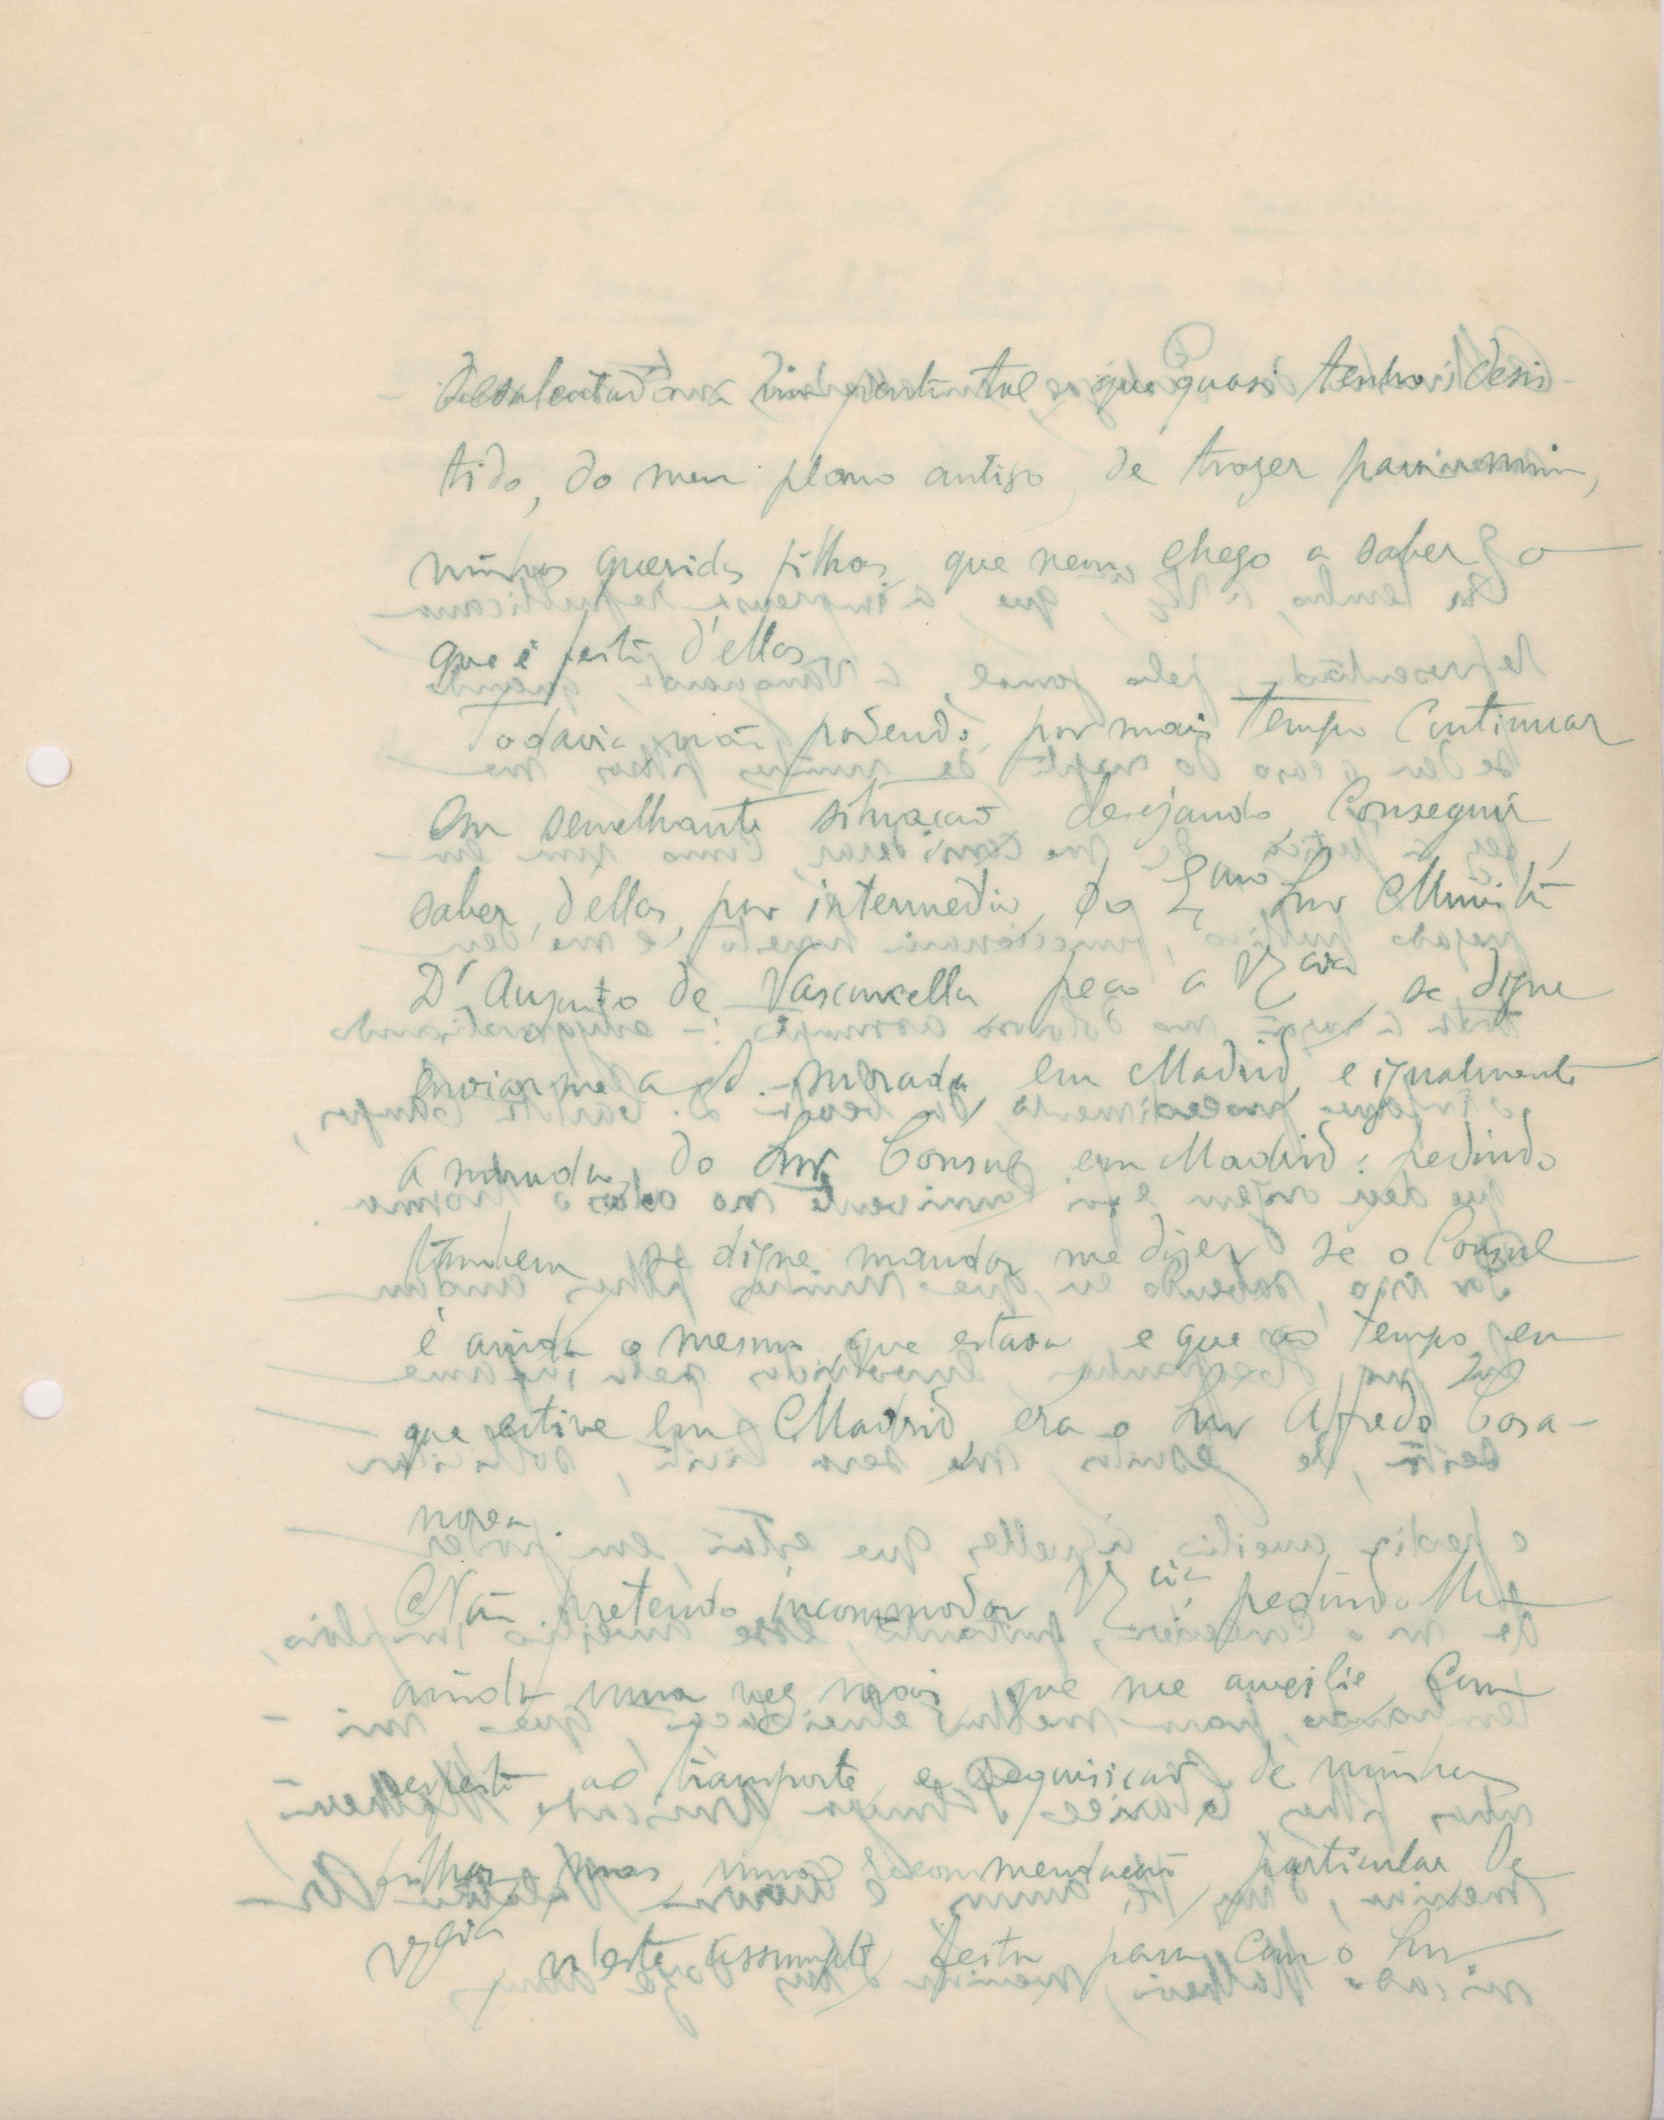 que quasi tenho desis-
tido, do meu plano antigo, de trazer para mim,
minhas queridas filhas, que nem chego a saber o
que é feito d'ellas.
Todavia, não podendo, por mais tempo continuar
em semelhante situação desejando conseguir
saber, d'ellas, por intermedio do Exmo Snr Ministro
Dr Augusto de Vasconcellos peço a V Excia se digne
enviar-me a morada, em Madrid, e igualmente
a morada, do Snr Consul em Madrid: pedindo
tambem se digne mandar me dizer se o Consul
é ainda o mesmo que estava e que ao tempo em
que estive em Madrid era o Snr Alfredo Casa-
nova.
Não pretendo incommodar V Excia pedindo-lhe
ainda uma vez mais, que me auxilie com
respeito ao transporte e requisição de minhas
filhas, mas uma recommendação particular de
V Excia n'este assumpto feita para com o Snr